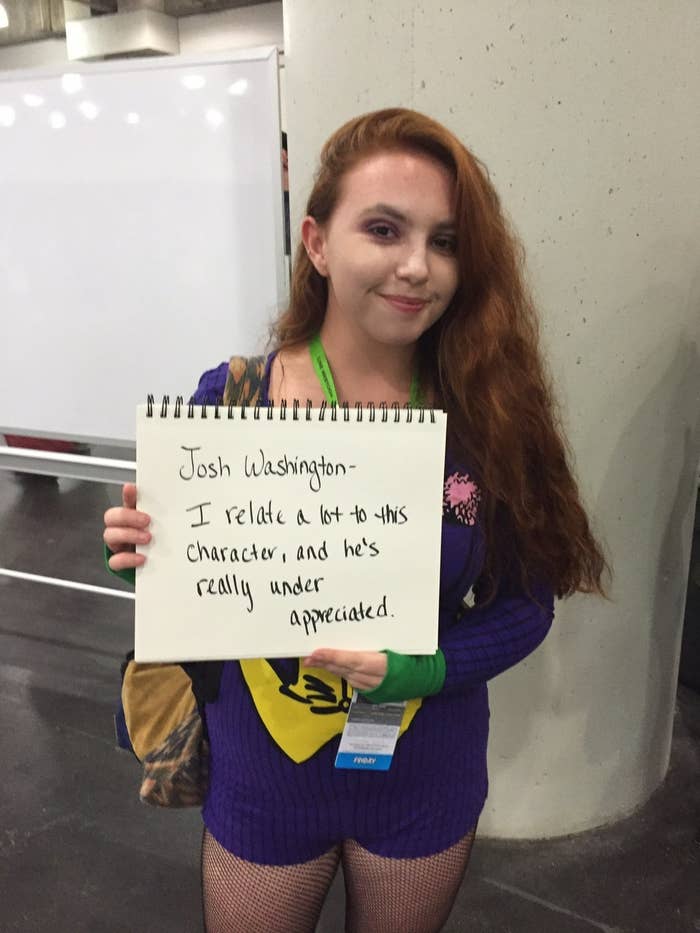 Josh Washington-
I relate a lot to this
character, and he's
really under
appreciated.
FRIDAY